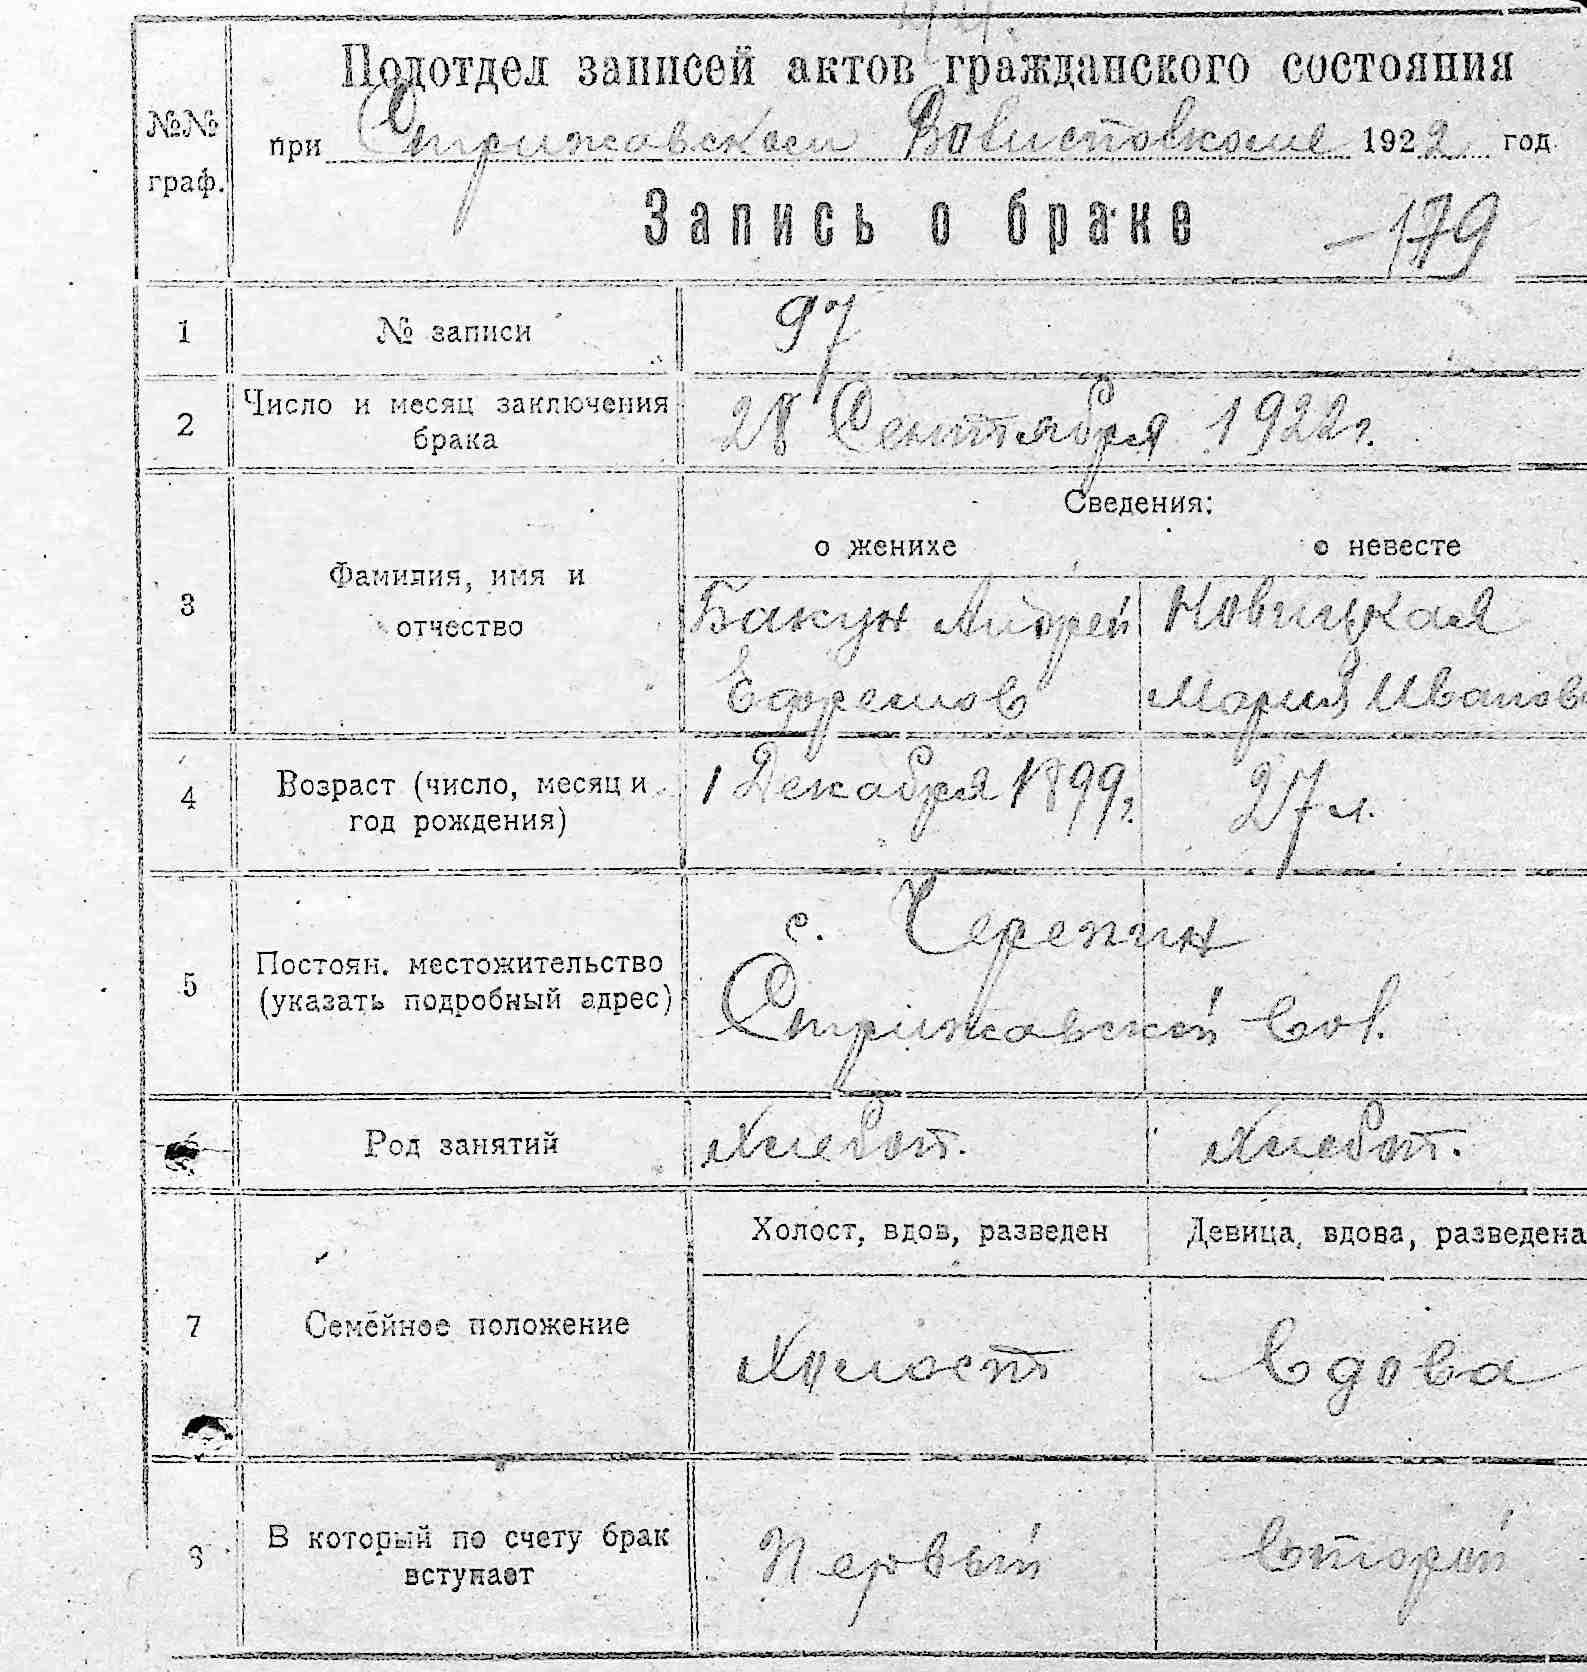 Подотдел записей актов гражданского состояния
№№ граф.
при Стрижавском Волисполкоме 1922 год
Запись о браке
-179
1 № записи 97
2 Число и месяц заключения
брака
28 Сентября 1922г.
Сведения:
о женихе о невесте
3 Фамилия, имя и
отчество
Бакун Андрей Новицкая
Ефремов Мария Иванов
4 Возраст (число, месяц и
год рождения)
1 Декабря 1899г. 27 л.
5 Постоян. местожительство
(указать подробный адрес)
с. Черепин
Стрижавской вол.
Род занятий Хлебоп. Хлебоп.
Холост, вдов, разведен Девица, вдова, разведена
7 Семейное положение Холост Вдова
8 В который по счету брак
вступает
Первый Второй